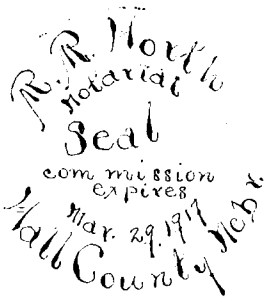 R. R. North
Notarial
Seal
commission
expires
Mar. 29. 1917
Hall County Nebr.